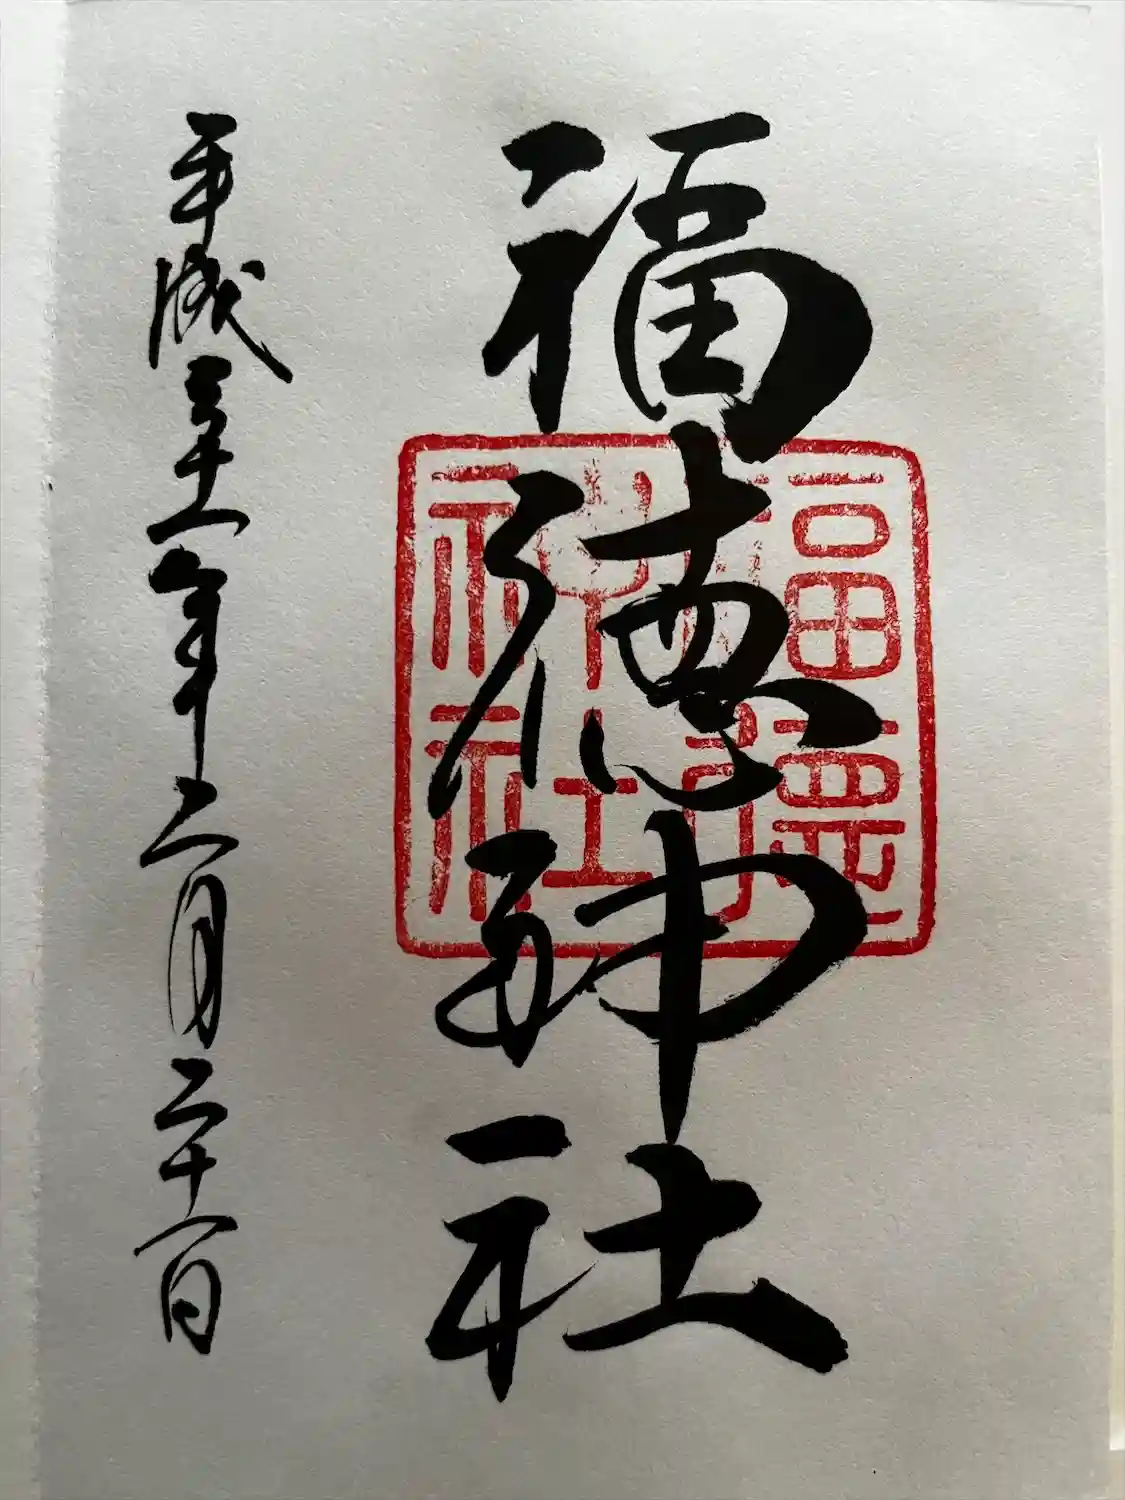 福徳神社
平成三十一年二月二十一日
福德
神社